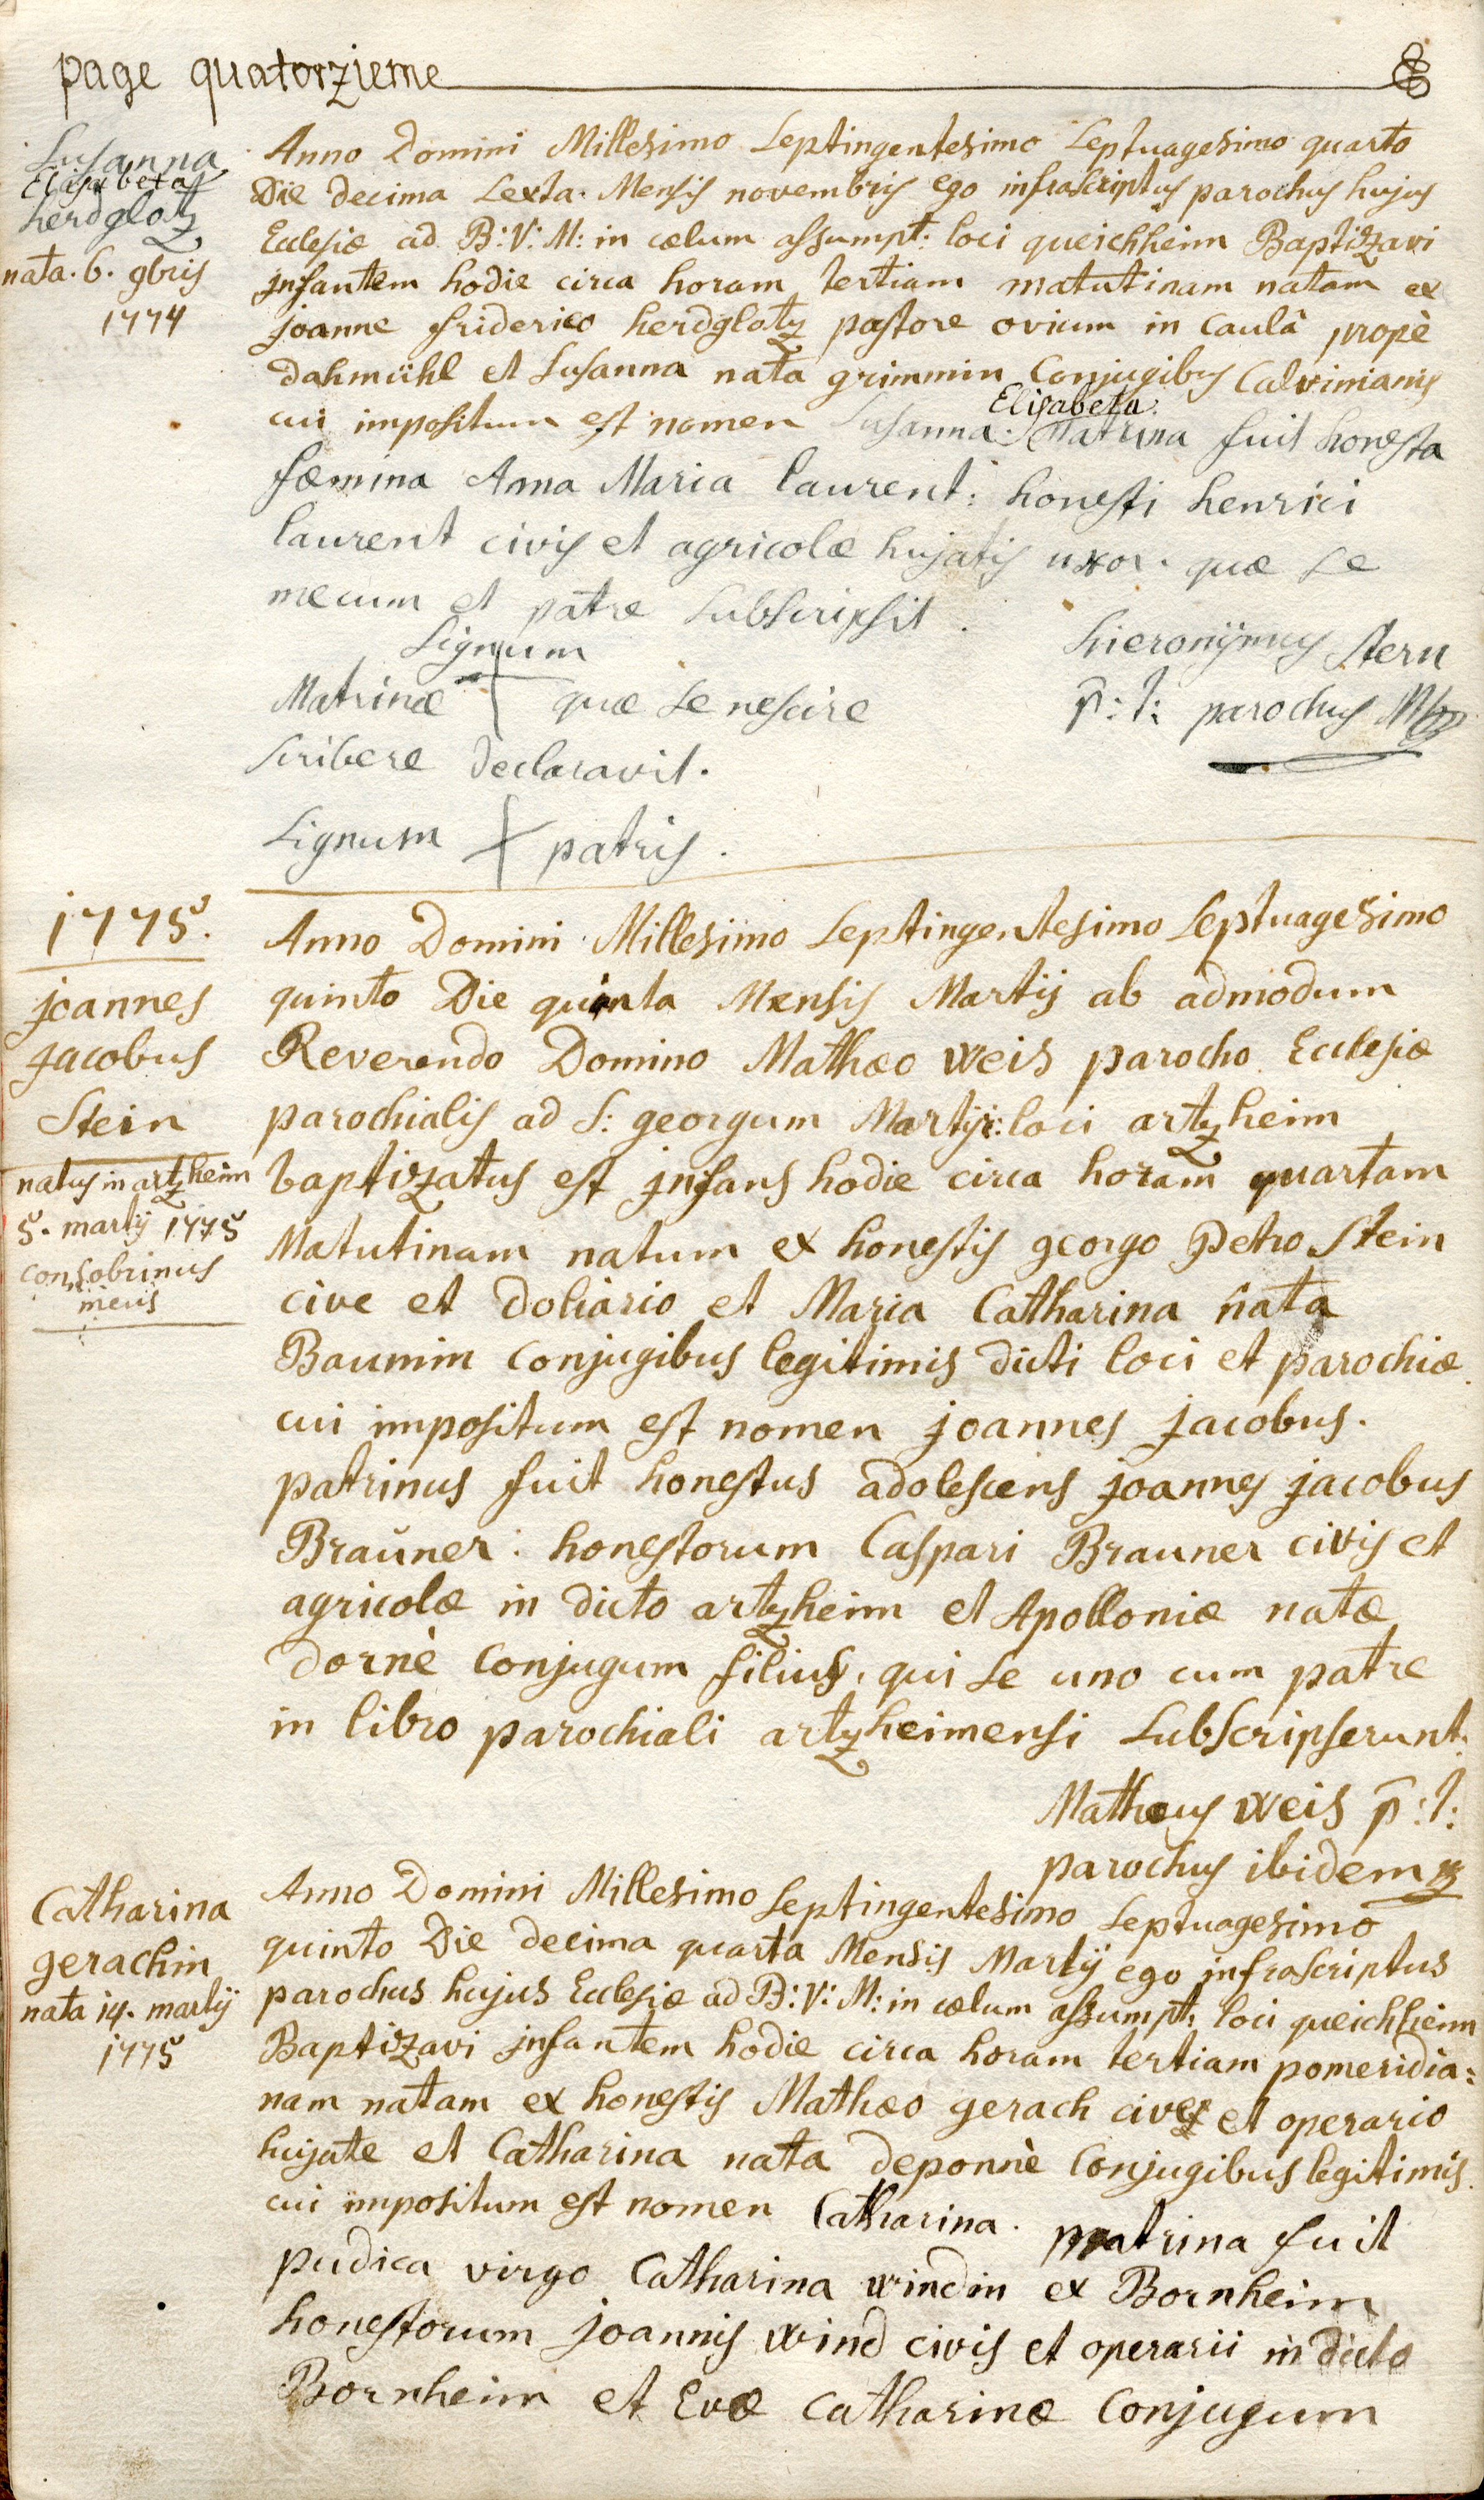 page quatorzieme
Susanna
Elisabeta
herdglotz
nata. 6. 9bris
1774
Anno Domini Millesimo Septingentesimo Septuagesimo quarto
Die decima Sexta. Mensis novembris ego infrascriptus parochus hujus
Ecclesiæ ad B: V: M: in cælum assumpt: loci queichheim Baptizavi
jnfantem hodie circa horam tertiam matutinam natam ex
joanne friderico herdglotz pastore ovium in Caulâ propè
dahmühl et Susanna nata grimmin Conjugibus Calvinianis
Elisabeta.
cui impositum est nomen Susanna. Matrina fuit honesta
fæmina Anna Maria laurent: honesti henrici
laurent civis et agricolæ hujatis uxor. quæ se
mecum et patre Subscripsit.
Signum
Matrinæ + quæ se nescire
Scribere declaravit.
hieronÿmus Stern
p: t: parochus
Signum + patris.
1775.
joannes
jacobus
Stein
natus in artzheim
5. martÿ 1775
consobrinus
meus
Anno Domini Millesimo Septingentesimo Septuagesimo
quinto Die quinta Mensis Martÿ ab admodum
Reverendo Domino Mathæo weis parocho Ecclesiæ
parochialis ad S: georgum Martÿr: loci artzheim
baptizatus est jnfans hodie circa horam quartam
Matutinam natum ex honestis georgo Petro Stein
cive et doliario et Maria Catharina nata
Baumin Conjugibus legitimis dicti loci et parochiæ
cui impositum est nomen joannes jacobus.
patrinus fuit honestus adolescens joannes jacobus
Braŭner: honestorum Caspari Brauner civis et
agricolæ in dicto artzheim et Apolloniæ natæ
dornè Conjugum filius, qui se uno cum patre
in libro parochiali artzheimensi Subscripserunt.
Mathæus weis p: t:
parochus ibidem
Catharina
gerachin
nata 14. martÿ
1775
Anno Domini Millesimo Septingentesimo Septuagesimo
quinto Die decima quarta Mensis Martÿ ego jnfrascriptus
parochus hujus Ecclesiæ ad B: V: M: in cælum assumpt: loci queichheim
Baptizavi jnfantem hodie circa horam tertiam pomeridia:
nam natam ex honestis Mathæo gerach cive et operario
hujate et Catharina nata deponnè Conjugibus legitimis.
cui impositum est nomen Catharina. matrina fuit
pudica virgo Catharina windin ex Bornheim
honestorum joannis wind civis et operarii in dicto
Bornheim et Evæ Catharinæ Conjugum